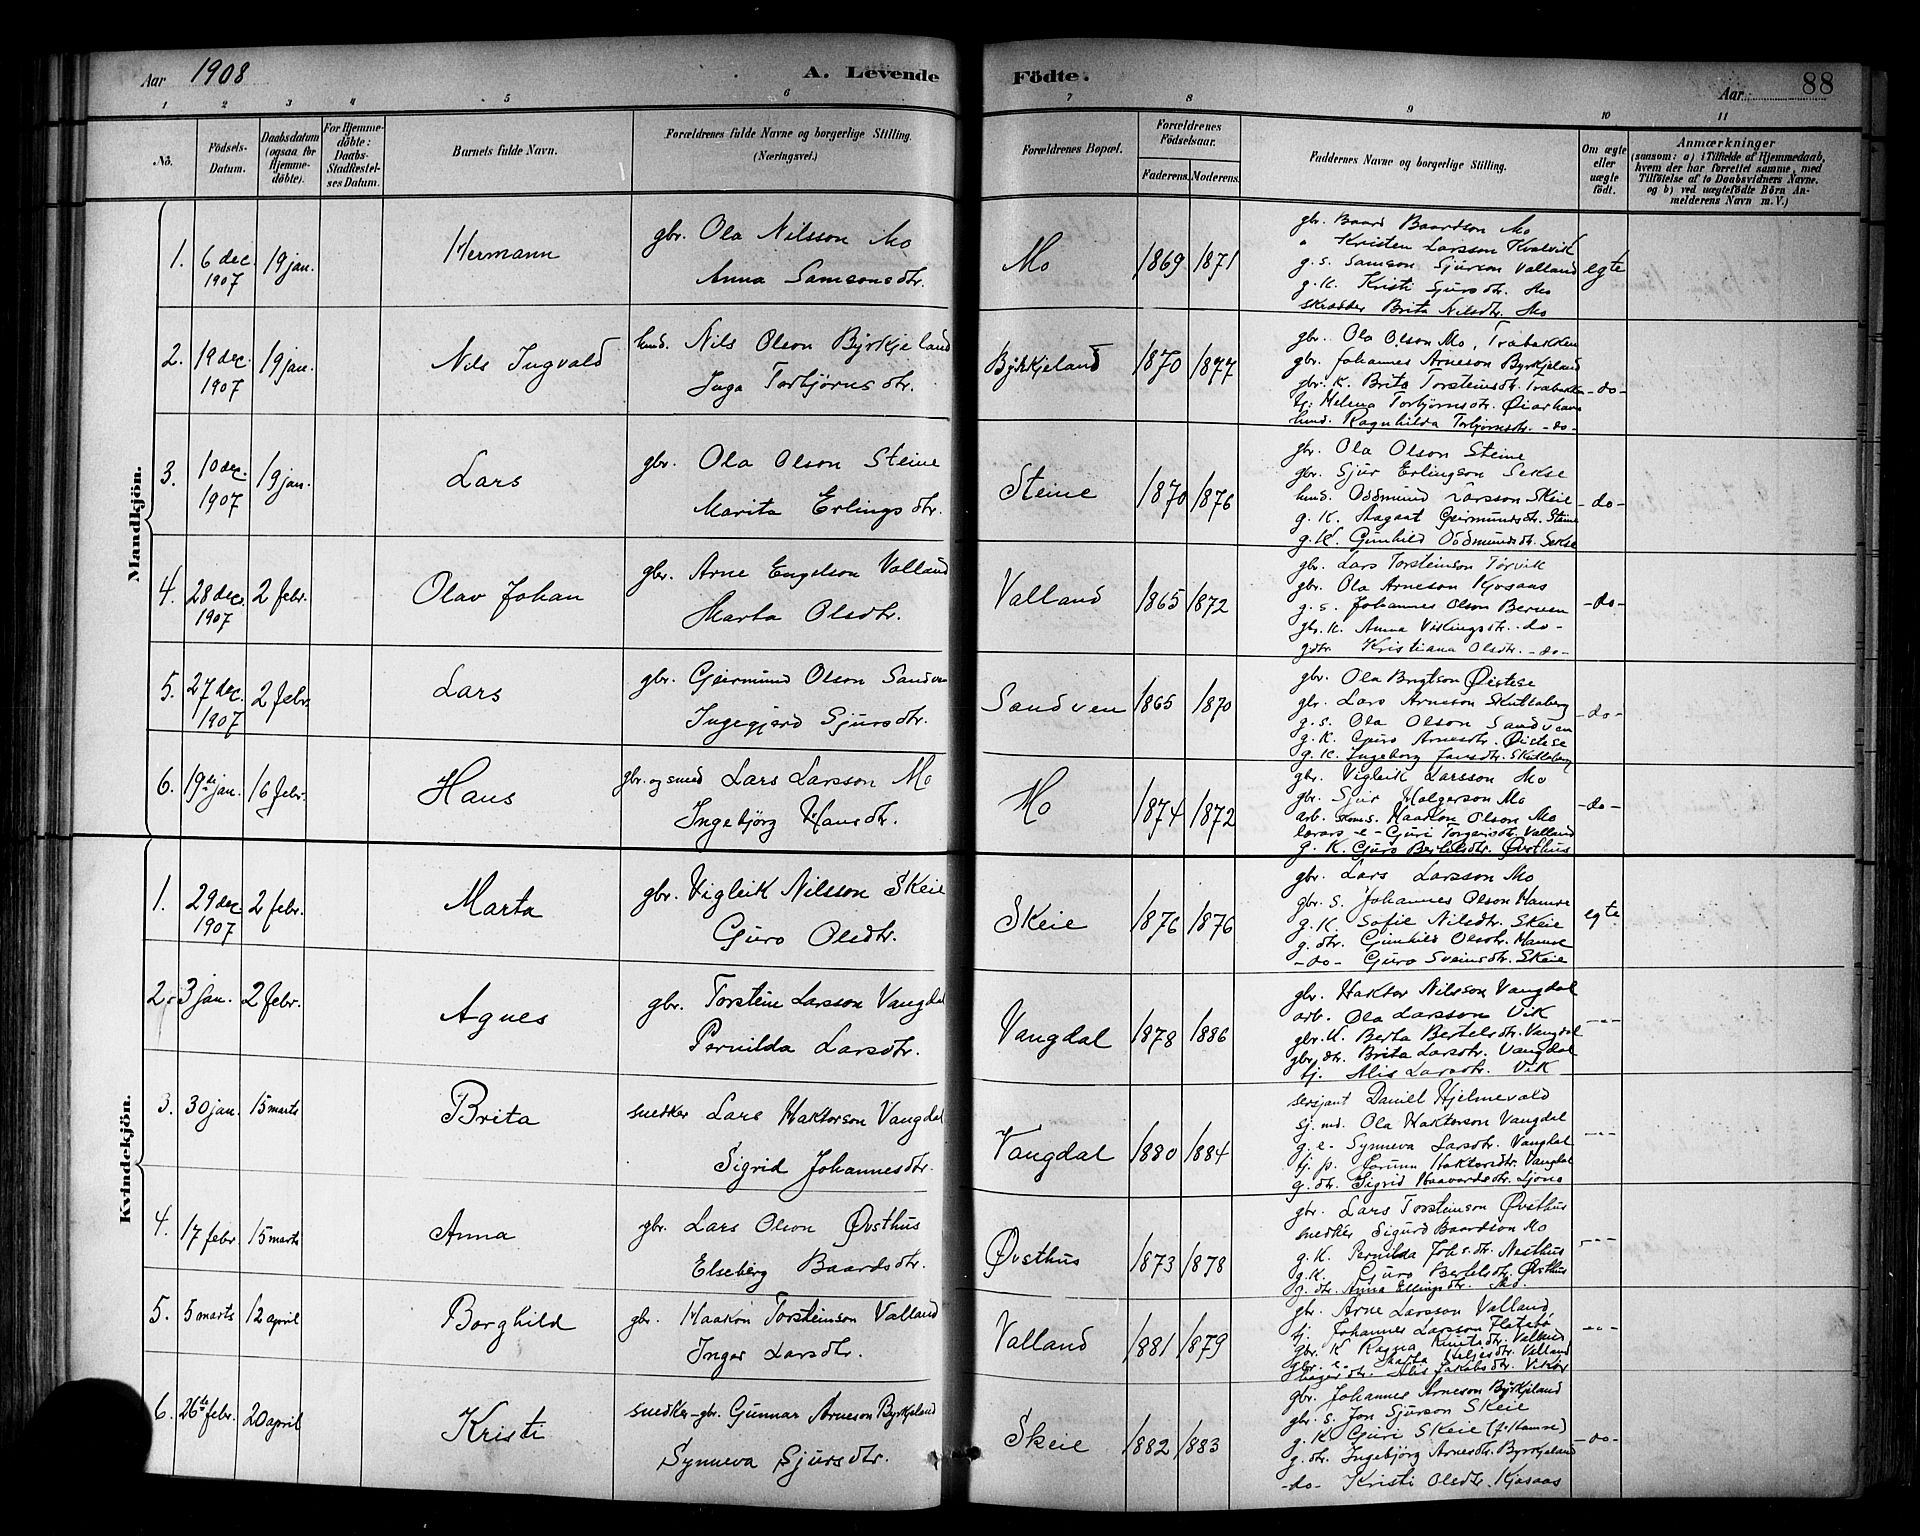 Aar 1908
A. Levende Födte.
Aar 88
1 2 3 4 5 6 7 8 9 10 11
No.
Födsels-Datum.
Daabsdatum (ogsaa for Hjemme-döbte).
For Hjemme-döbte: Daabs-Stadfæstel-ses Datum.
Barnets fulde Navn.
Forældrenes fulde Navne og borgerlige Stilling. (Næringsvei.)
Forældrenes Bopæl.
Forældrenes Födselsaar.
Faderens. Moderens.
Faddernes Navne og borgerlige Stilling.
Om ægte eller uægte födt.
Anmærkninger
(saasom: a) i Tilfælde af Hjemmedaab,
hvem der har forrettet samme, med
Tilföielse af to Daabsvidners Navne.
og b) ved uægtefödte Börn An-
melderens Navn m. V.)
Mandkjön.
1. 6 dec. 1907 19 jan. Hermann
gbr. Ola Nilsson Mo
Anna Samsonsdtr.
Mo 1869 1871
gbr. Baard Baardson Mo
" Kristen Larsson Kvalvik
g.s. Samson Sjurson Valland
g.k. Kristi Sjursdtr. Mo
skrædder Brita Nilsdtr. Mo
egte
2. 19 dec. 1907 19 jan. Nils Ingvald
hmd. Nils Olson Byrkjeland
Inga Torbjørnsdtr.
Byrkjeland 1870 1877
gbr. Ola Olson Mo, Træbakken
gbr. Johannes Arneson Byrkjeland
gbr. k. Brita Torsteinsdtr. Træbakken
tj. Helena Torbjørnsdtr.
hmd. Ragnhilda Torbjørnsdtr. -do-
-do-
3. 10 dec. 1907 19 jan. Lars
gbr. Ola Olson Steine
Marita Erlingsdtr.
Steine 1870 1876
gbr. Ola Olson Steine
gbr. Sjur Erlingson Sekse
hmd. Oddmund Larsson Skeie
g.k. Magaat Geirmundsdtr. Steine
g.k. Gunhild Oddmundsdtr. Sekse
-do-
4. 28 dec. 1907 2 febr. Olav Johan
gbr. Arne Engelson Valland
Marta Olsdtr.
Valland 1865 1872
gbr. Lars Torsteinson Tørvik
gbr. Ola Arneson Kjosaas
g.s. Johannes Olson Berven
gbr. k. Anna Vikingsdtr. -do-
gdtr Kristiana Olsdtr. -do-
-do-
5. 27 dec. 1907 2 febr. Lars
gbr. Geirmund Olson Sandven
Ingegjerd Sjursdtr.
Sandven 1865 1870
gbr. Ola Brytson Øistese
gbr. Lars Arneson Skutlaberg
g.s. Ola Olson Sandven
g.k. Guro Arnesdtr. Øistese
g.k. Ingeborg Jansdtr. Skutlaberg
-do-
6. 19de jan. 16 febr. Hans
gbr. og smed Lars Larsson Mo
Ingebjörg Hansdtr.
Mo 1874 1872
gbr. Vigleik Larsson Mo
gbr. Sjur Holgerson Mo
arb. Haakon Olson Mo
lærars -e- Guri Torgeirsdtr. Valland
g.k. Guro Bertelsdtr. Øvsthus
-do-
Kvindekjön.
1. 29 dec. 1907 2 febr. Marta
gbr. Vigleik Nilsson Skeie
Guro Olsdtr.
Skeie 1876 1876
gbr. Lars Larsson Mo
gbr. s. Johannes Olson Hamre
g.k. Sofie Nilsdtr. Skeie
g. dtr. Gunhild Olsdtr. Hamre
-do- Guro Sveinsdtr. Skeie
egte
2. 3 jan. 2 febr. Agnes
gbr. Torstein Larsson Vangdal
Pernilda Larsdtr.
Vangdal 1878 1886
gbr. Haktor Nilsson Vangdal
arb. Ola Larsson Vik
gbr. k. Berta Bertelsdtr. Vangdal
gbr. dtr. Brita Larsdtr. Vangdal
tj. Alis Larsdtr. Vik
-"-
3. 30 jan. 15 marts Brita
snedker Lars Haktorson Vangdal
Sigrid Johannesdtr.
Vangdal 1880 1884
sersjant Daniel Hjelmevald
sj. md. Ola Haktorson Vangdal
g. e- Synneva Larsdtr. Vangdal
tj. p. Torunn Haktorsdtr. Vangdal
g. dtr. Sigrid Haavardsdtr. Ljono
-"-
4. 17 febr. 15 marts Anna
gbr. Lars Olson Øvsthus
Elseberg Baardsdtr.
Øvsthus 1873 1878
gbr. Lars Torsteinson Øvsthus
snedker Sigurd Baardson Mo
g.k. Pernilda Johsdtr. Nesthus
g.k. Guro Bertelsdtr. Øvsthus
g. dtr. Anna Ellingsdtr. Mo.
-"-
5. 5 marts 12 april Borghild
gbr. Haakon Torsteinson Valland
Inger Larsdtr.
Valland 1881 1879
gbr. Arne Larsson Valland
tj. Johannes Larsson Flatabø
gbr. k Ragna Knutsdtr. Valland
gbr. e. Marta Heljesdtr. Valland
dtr. Alis Jakobsdtr. Vikør
-"-
6. 26de febr. 20 april Kristi
snedker - gbr. Gunnar Arneson Byrkjeland
Synneva Sjursdtr.
Skeie 1882 1883
gbr. Johannes Arneson Byrkjeland
gbr. s. Jon Sjurson Skeie
g.k Guri Skeie (f. Hamre)
g. dtr. Ingebjörg Arnesdtr. Byrkjeland
-do- Kristi Olsdtr. Kjosaas
-do-